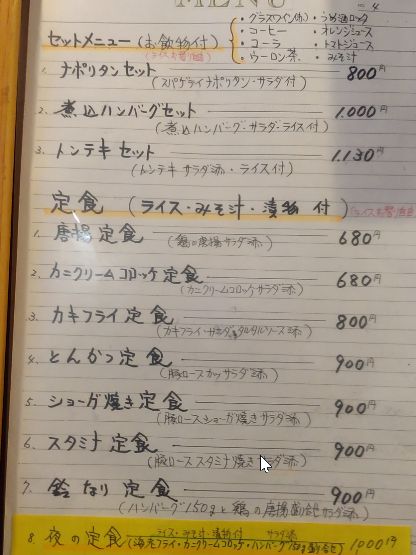 MENU
セットメニュー (お飲物付)
・グラスワイン(赤) ・うめ酒ロック
・コーヒー ・オレンジジュース
・コーラ ・トマトジュース
・ウーロン茶 ・みそ汁
1. ナポリタンセット 800円
(スパゲティナポリタン・サラダ付)
2. 煮込ハンバーグセット 1.000円
(煮込ハンバーグ・サラダ・ライス付)
3. トンテキセット 1.130円
(トンテキ サラダ添・ライス付)
定食 (ライス・みそ汁・漬物 付)
1. 唐揚定食 (鶏の唐揚サラダ添) 680円
2. カニクリームコロッケ定食 680円
(カニクリームコロッケサラダ添)
3. カキフライ定食 800円
(カキフライ・サラダ・タルタルソース添)
4. とんかつ定食 900円
(豚ロースカツサラダ添)
5. ショーガ焼き定食 900円
(豚ロースショーガ焼きサラダ添)
6. スタミナ定食 900円
(豚ローススタミナ焼きサラダ添)
7. 鈴なり定食 900円
(ハンバーグ150gと鶏の唐揚盛合せサラダ添)
8. 夜の定食 ライス・みそ汁・漬物付 サラダ添 1000円
(海老フライ・カニクリームコロッケ・ハンバーグ盛合せ)